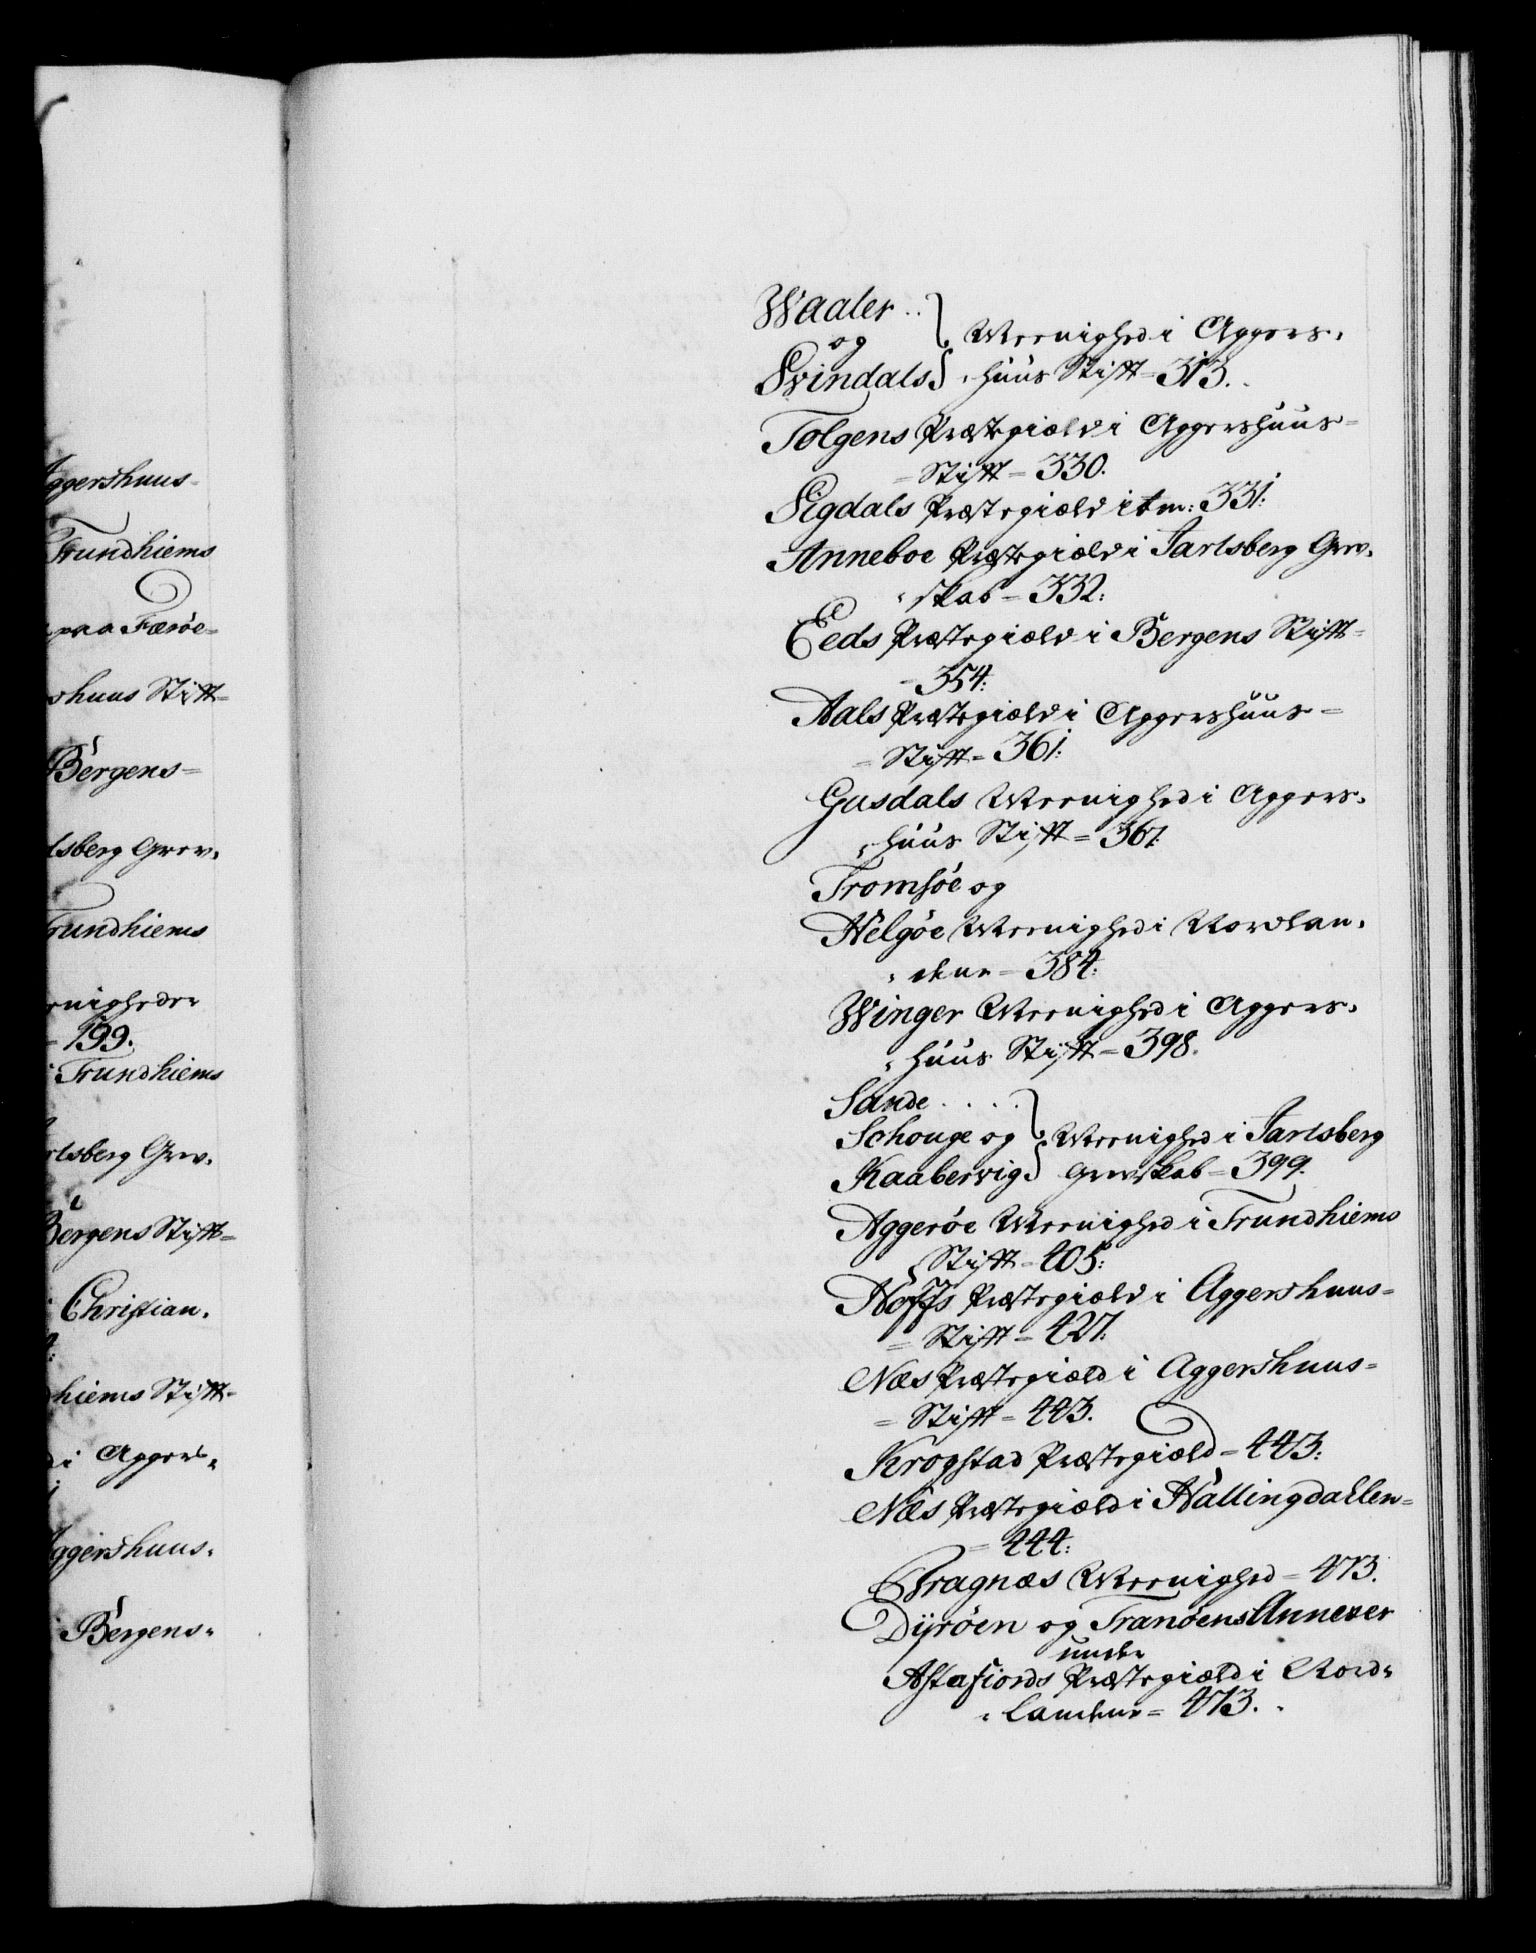 Aggershuus-
Trundhiems
paa Færøe-
shuus Stift-
Bergens-
lsberg Grev-
rundhiems
enigheder
- 199.
i Trundhiems
rlsberg Grev-
Bergens Stift-
i Christian-
hiems Stift-
di Aggers-
Aggershuus-
i Bergens-
Waaler ..
og } Meenighed i Aggers-
Svindals -huus Stift = 313.
Tolgens Præstegiæld i Aggershuus-
= Stift = 330.
Sigdals Præstegiæld itm: 331:
Anneboe Præstegiæld i Jarlsberg Grev-
-skab = 332:
Eeds Præstegiæld i Bergens Stift-
- 354:
Aals Præstegiæld i Aggershuus-
= Stift = 361:
Gusdals Meenighed i Aggers-
-huus Stift = 367:
Tromsøe og
Helgøe Meenighed i Nordlan-
-dene = 384:
Winger Meenighed i Aggers-
-huus Stift = 398.
Sande . . . .
Schouge og } Meenighed i Jarlsberg
Kaabervig Grevskab = 399.
Aggerøe Meenighed i Trundhiems
Stift = 405:
Hoffs Præstegiæld i Aggershuus-
= Stift = 427:
Næs Præstegiæld i Aggershuus-
= Stift = 443.
Krogstad Præstegiæld = 443:
Næs Præstegiæld i Hallingdallen-
= 444:
Bragnæs Meenighed = 473.
Dyrøen og Tranøens Annexer
under
Astafiords Præstegiæld i Nord-
-landene = 473.